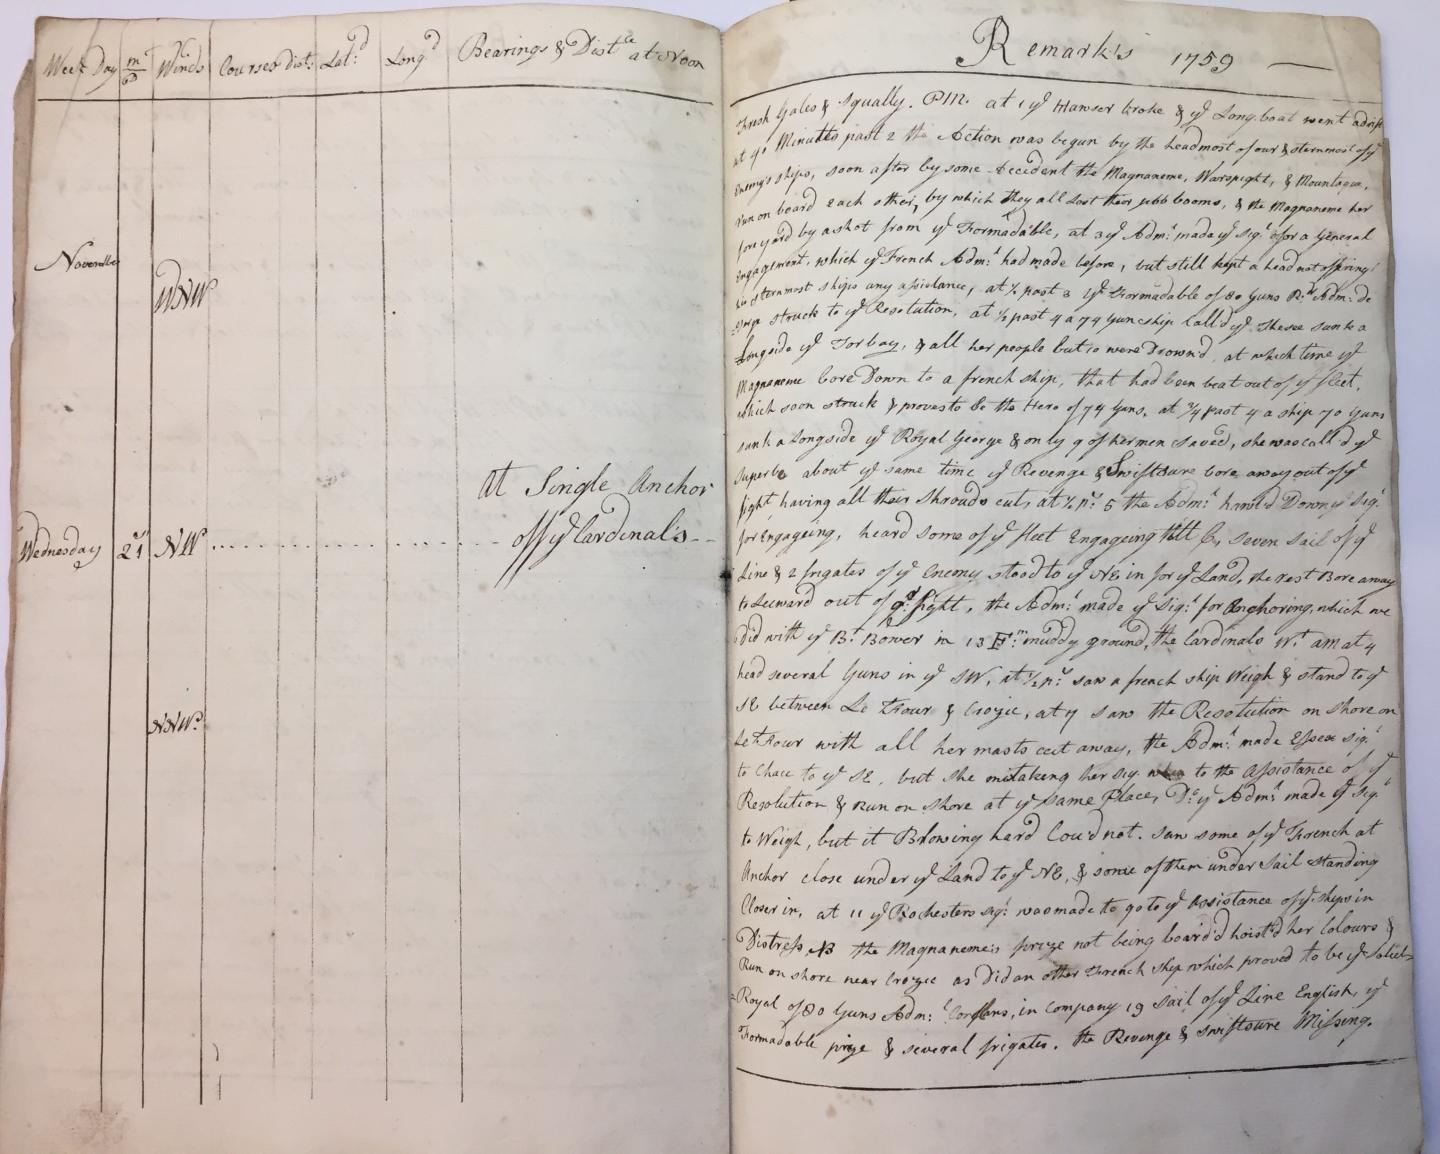 Week Day mo/D Winds Courses Dist: Lat:d Long:d Bearings & Distce at Noon
November
WNW
at Single Anchor
off ye Cardinal's --
Wednesday 21st NW
NNW:
Remark's 1759
Fresh Gales & Squally. PM. at 1 ye Hawser broke & ye Long:boat went adrift
at 40 Minutes past 2 the Action was begun by the headmost of our & sternmost of ye
Enemy's ships, soon after by some Accident the Magnaneme, Warspight, & Mountague,
run on board Each other, by which they all Lost their jibb booms, & the Magnaneme her
foreyard by a shot from ye Formadable, at 3 ye Adm:l made ye Sig:l for a General
Engagement, which ye French Adm:l had made before, but still kept a head not offering
his sternmost ships any assistance, at ½ past 3 ye Formadable of 80 Guns R:r Adm: de
Verge struck to ye Resolution, at ½ past 4 a 74 Gun ship Call'd ye Thesee sunk a
Longside ye Torbay, & all her people but 10 were Drown'd, at which time ye
Magnaneme bore Down to a french ship, that had been beat out of ye fleet,
which soon struck & proves to be the Hero of 74 Guns, at ¾ past 4 a ship 70 Guns
sunk a Longside ye Royal George & only 9 of her men Saved, she was call'd ye
Superbe about ye same time ye Revenge & Swiftsure bore away out of ye
fight having all their Shrouds cut, at ½ pt 5 the Adm:l hawl'd Down ye Sig:l
for Engageing, heard some of ye fleet Engageing till 6, seven sail of ye
Line & 2 frigates of ye Enemy stood to ye NE in for ye Land, the rest Bore away
to Leeward out of ye fight, the Adm:l made ye Sig:l for Anchoring, which we
Did with ye Bt Bower in 13 Fm: muddy ground, the Cardinals Wt AM at 4
head several Guns in ye SW, at ½ pt saw a french ship Weigh & stand to ye
SE between Le Four & Crozie, at 7 saw the Resolution on Shore on
Le Four with all her masts cut away, the Adm:l made Essex Sig:l
to Chace to ye SE, but she mistaking her sig. to the Assistance of ye
Resolution & Run on Shore at ye same Place, Do ye Adm:l made ye Sig:l
to Weigh, but it Blowing hard Cou'd not. Saw some of ye French at
Anchor close under ye Land to ye NE, & some of them under Sail standing
Closer in, at 11 ye Rochesters Sig:l was made to go to ye Assistance of ye ships in
Distress, NB the Magnaneme's prize not being board'd hoist'd her Colours &
Run on shore near Crozie as Did an other French ship which proved to be ye Soliel=
=Royal of 80 Guns Adm:l Conflans, in Company 19 Sail of ye Line English, ye
Formadable prize & several frigates. the Revenge & Swiftsure Missing.